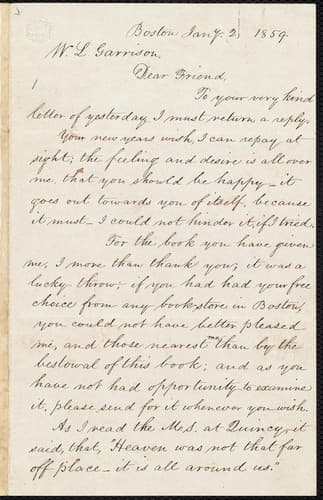 Boston Jany. 2, 1859.
W. L. Garrison,
Dear Friend,
To your very kind
letter of yesterday I must return a reply.
Your new years wish, I can repay at
sight; the feeling and desire is all over
me, that you should be happy – it
goes out towards you of itself, because
it must – I could not hinder it, if I tried.
For the book you have given
me, I more than thank you; it was a
lucky throw; if you had had your free
choice from any bookstore in Boston,
you could not have better pleased
me, and those nearest me than by the
bestowal of this book; and as you
have not had opportunity to examine
it, please send for it whenever you wish.
As I read the M.S. at Quincy, it
said, that, "Heaven was not that far
off place – it is all around us."